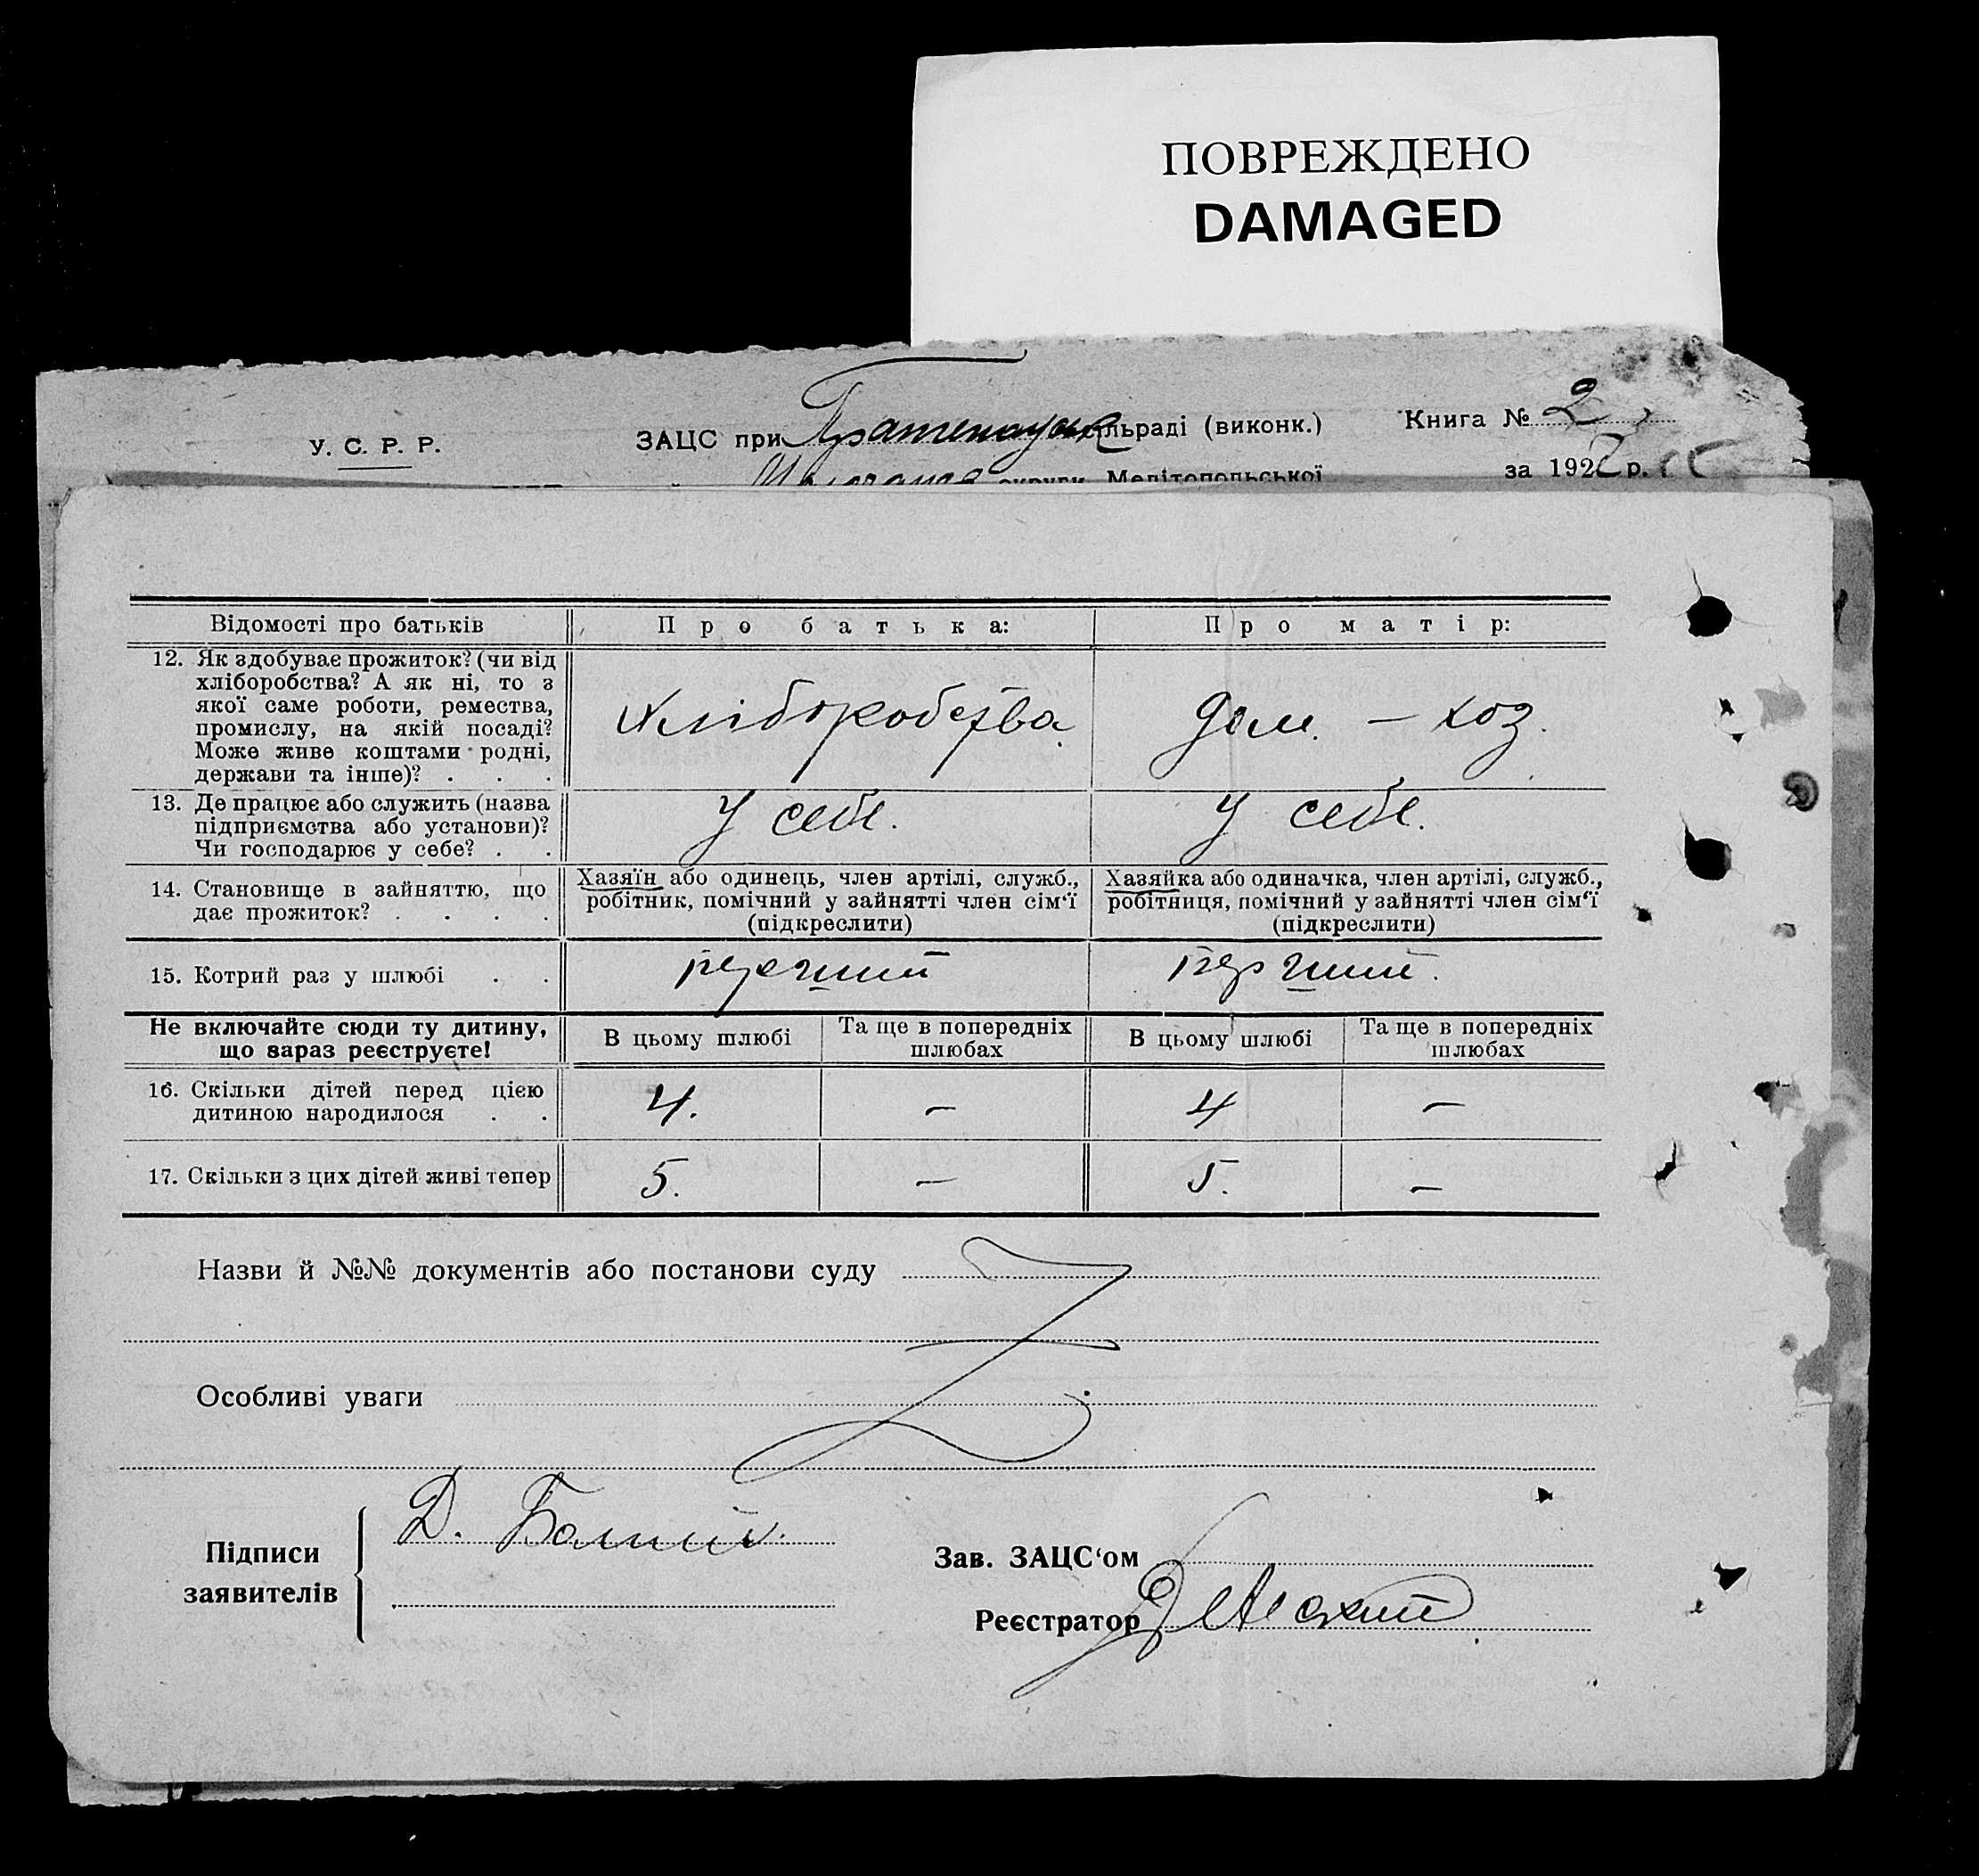 ПОВРЕЖДЕНО
DAMAGED
У. С. Р. Р.
ЗАЦС при льраді (виконк.)
Книга № 2
округи Мелітопольської
за 192 р.
Відомості про батьків
Про батька:
Про матір:
12. Як здобуває прожиток? (чи від
хліборобства? А як ні, то з
якої саме роботи, ремества,
промислу, на якій посаді?
Може живе коштами родні,
держави та інше)? . . .
Хліборобства.
Дом. – хоз.
13. Де працює або служить (назва
підприємства або установи)?
Чи господарює у себе? . .
У себе.
У себе.
14. Становище в зайняттю, що
дає прожиток? . . . .
Хазяїн або одинець, член артілі, служб.,
робітник, помічний у зайнятті член сім'ї
(підкреслити)
Хазяйка або одиначка, член артілі, служб.,
робітниця, помічний у зайнятті член сім'ї
(підкреслити)
15. Котрий раз у шлюбі . .
перший
перший.
Не включайте сюди ту дитину,
що зараз реєструєте!
В цьому шлюбі
Та ще в попередніх
шлюбах
В цьому шлюбі
Та ще в попередніх
шлюбах
16. Скільки дітей перед цією
дитиною народилося . .
4.
–
4
–
17. Скільки з цих дітей живі тепер
5.
–
5.
–
Назви й №№ документів або постанови суду
Особливі уваги
Підписи
заявителів
Д.
Зав. ЗАЦС'ом
Реєстратор